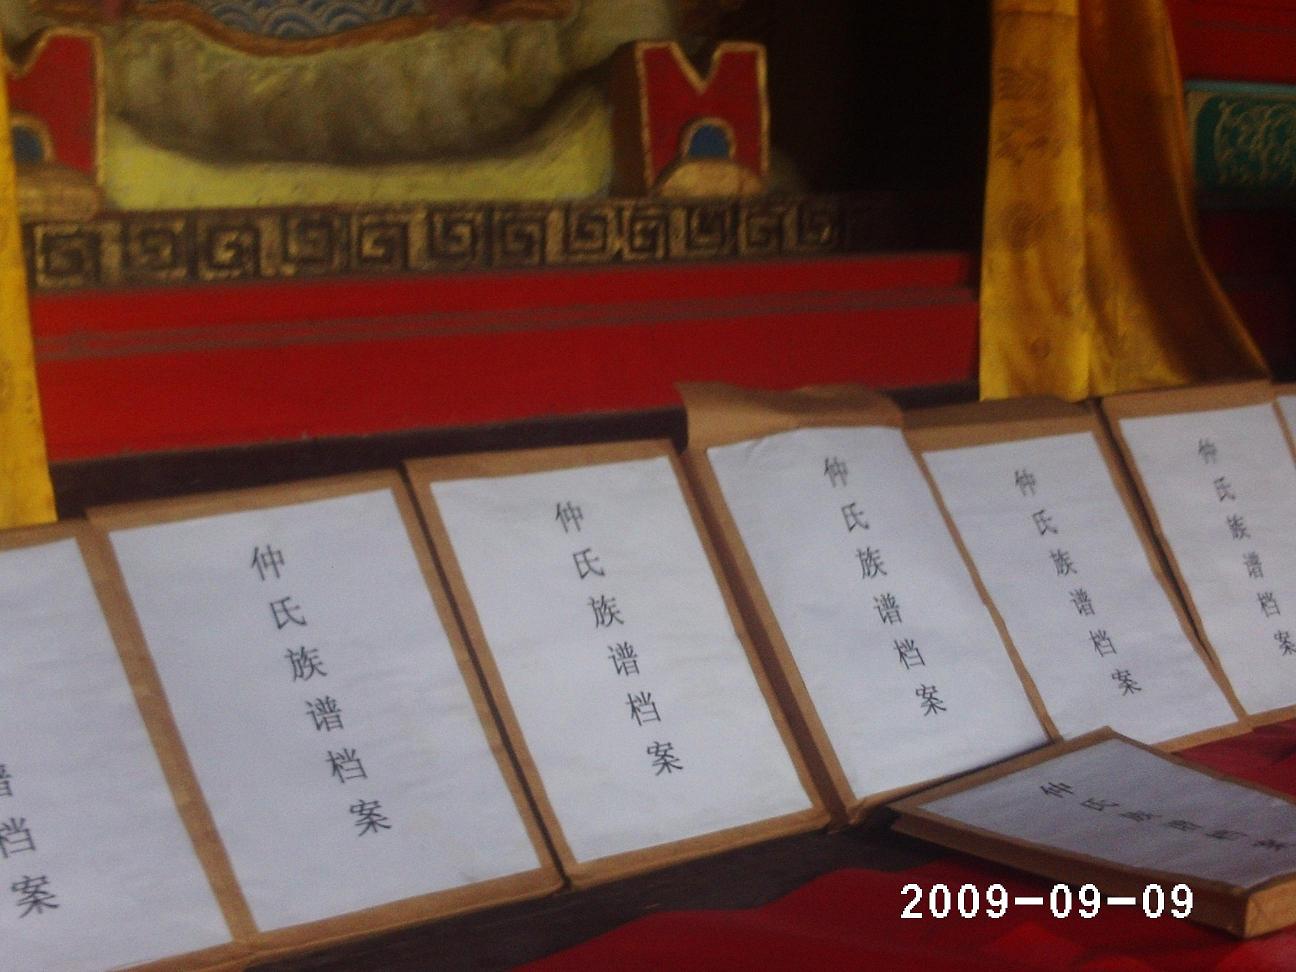 谱档案
仲氏族谱档案
仲氏族谱档案
仲氏族谱档案
仲氏族谱档案
仲氏族谱档案
仲氏族谱档案
2009-09-09